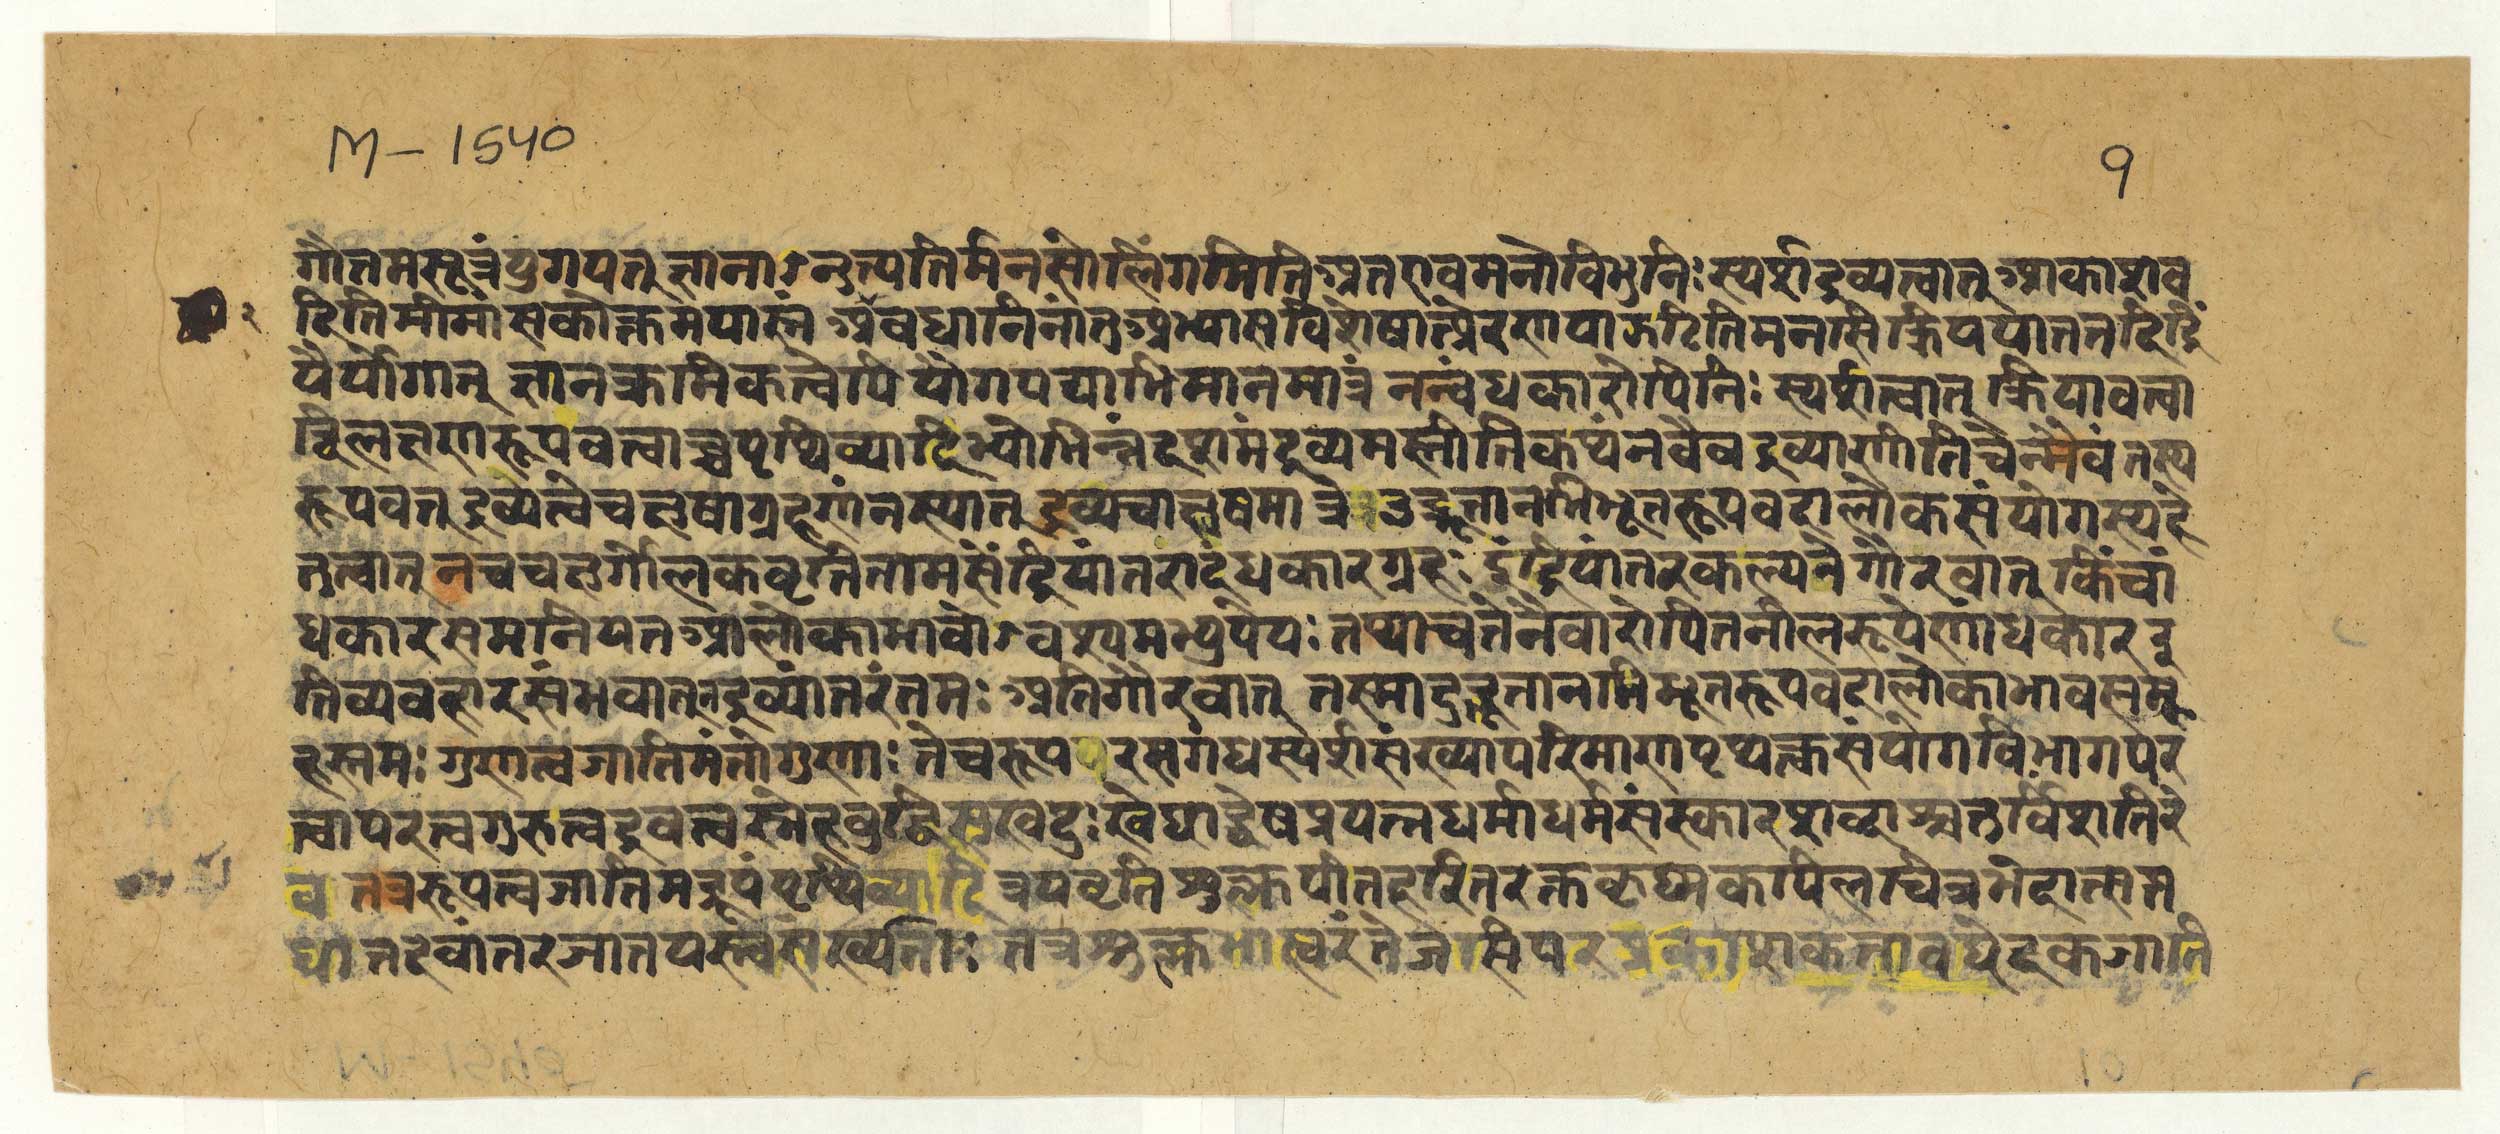 M-1540
9
गौतमसूत्रं युगपत् ज्ञानाऽनुत्पत्तिर्मनसोलिंगमिति अतएवमनोविभुनिः स्पर्शद्रव्यत्वात् आकाशव
दितिमीमांसकोक्तमपास्तं अवधानिनांतुअभ्यासविशेषात्प्रेरणया ऊटितिमनसिक्रिययातत्तदिंद्रि
यैर्योगात् ज्ञानक्रमिकत्वेपि यौगपद्याभिमानमात्रं नन्वंधकारोपिनिः स्पर्शत्वात् क्रियावत्वा
द्विलक्षणरूपवत्वाच्चपृथिव्यादिभ्योभिन्नंदशमंद्रव्यमस्तीतिकथंनवैवद्रव्याणीतिचेन्मैवं तस्य
रूपवत् द्रव्यत्वेचक्षुषाग्रहणंनस्यात् द्रव्यचाक्षुषमात्रे उद्भूतानभिभूतरूपवदालोकसंयोगस्यहे
तुत्वात् नचचक्षुर्गोलकवृत्तितामसेंद्रियांतरादंधकारग्रहः इंद्रियांतरकल्पनेगौरवात् किंचां
धकारसमनियतआलोकाभावोऽवश्यमभ्युपेयः तथाचतेनैवारोपितनीलरूपेणांधकारइ
तिव्यवहारसंभवात्नद्रव्यांतरंतमः अतिगौरवात् तस्मादुद्भूतानभिभूतरूपवदालोकाभावसमू
हस्तमः गुणत्वजातिमंतोगुणाः तेचरूपरसगंधस्पर्शसंख्यापरिमाणपृथक्त्वसंयोगविभागपर
त्वापरत्वगुरुत्वद्रवत्वस्नेहबुद्धिसुखदुःखेछाद्वेषप्रयत्नधर्माधर्मसंस्कारशब्दाश्चतुर्विंशतिरे
व तत्ररूपत्वजातिमद्रूपंपृथिव्यादित्रयवृत्ति शुक्लपीतहरितरक्तकृष्णकपिलचित्रभेदात्सप्त
धा तदवांतरजातयस्त्वसंख्याताः तत्रशुक्लभास्वरंतेजसि परप्रकाशकतावछेदकजाति